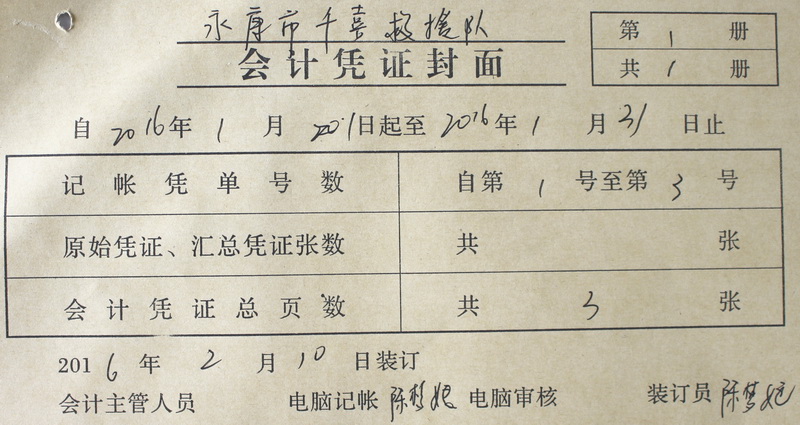 永康市千喜救援队
会计凭证封面
第 1 册
共 1 册
自 2016年 1 月 201日起至 2016年 1 月 31 日止
记帐凭单号数 自第 1 号至第 3 号
原始凭证、汇总凭证张数 共 张
会计凭证总页数 共 3 张
2016年 2 月 10 日装订
会计主管人员 电脑记帐 陈梦妮 电脑审核 装订员 陈梦妮